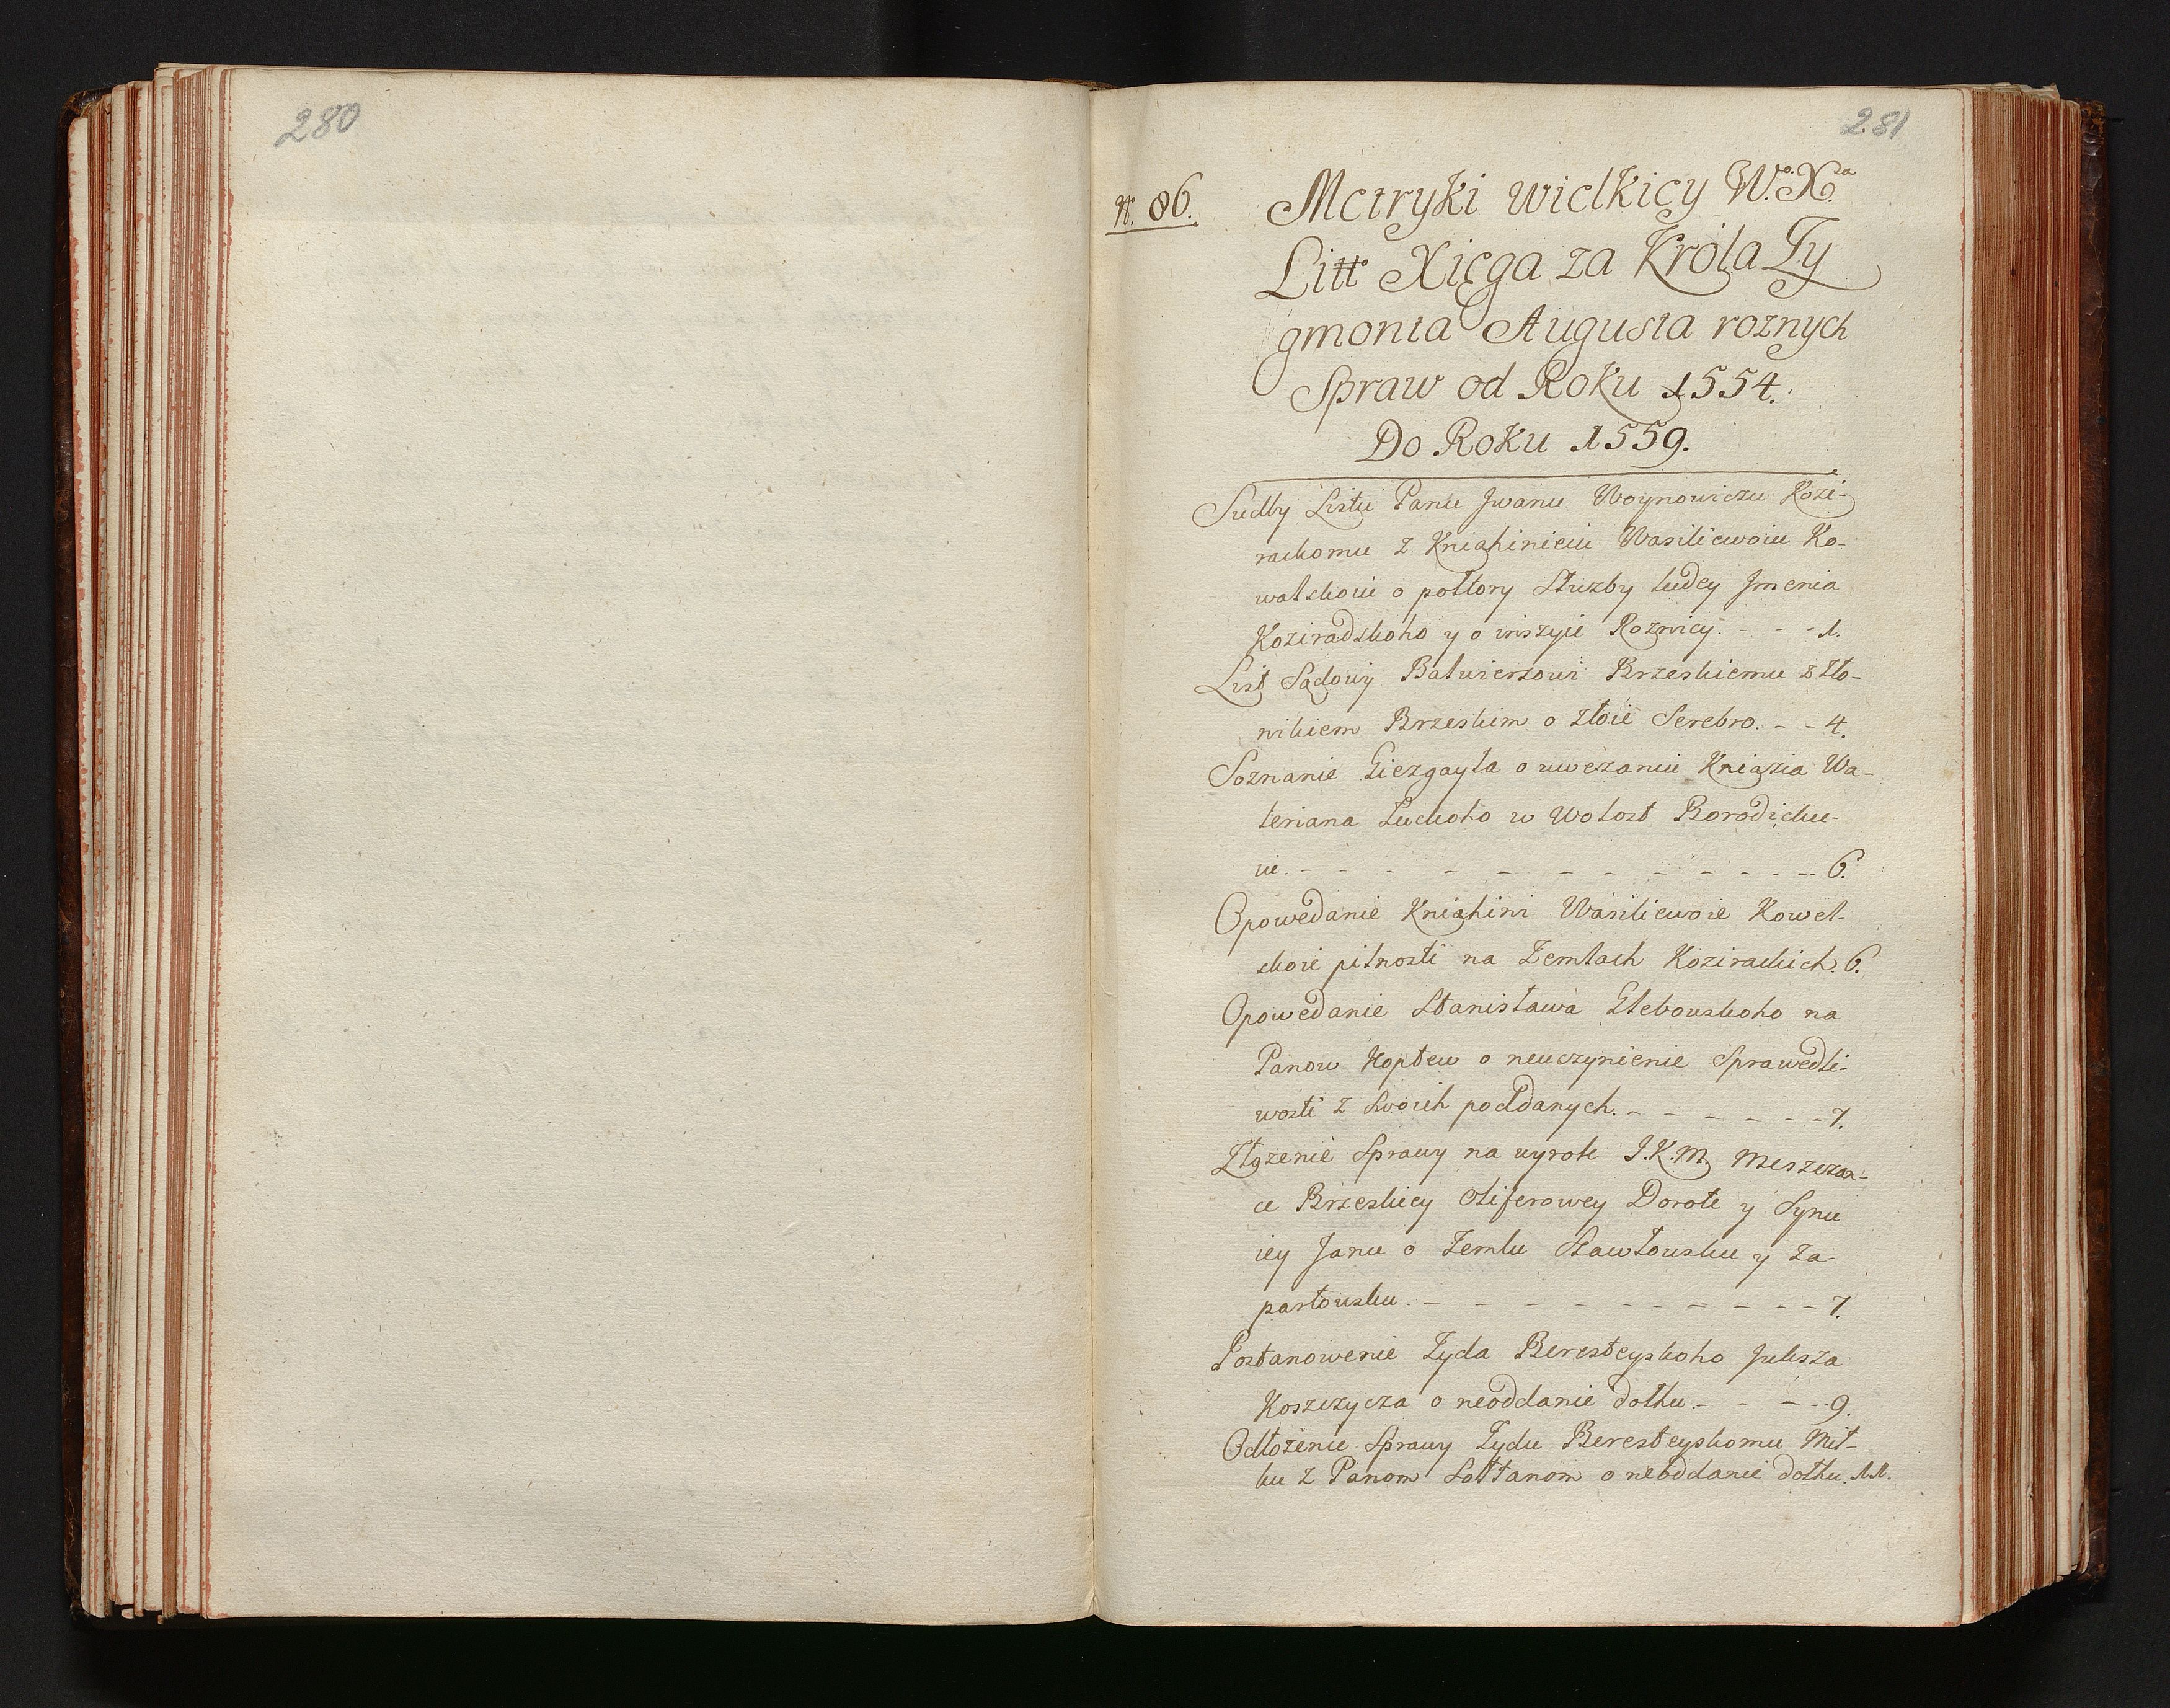 280
281
N. 86.
Metryki wielkiey W.o X.a
Litt.o Xięga za Króla Zy
gmonta Augusta roznych
Spraw od Roku 1554.
Do Roku 1559.
Sudby Listu Panu Jwanu Woynowiczu Kozi-
rackomu z Kniahinieiu Wasiliewoiu Ko-
walskoiu o poltory Służby ludey Jmenia
Koziradskoho y o inszyie Roznicy. - - - 1.
List Sądowy Balwierzowi Brzeskiemu z Zło-
nikiem Brzeskim o złoie Serebro. - - 4.
Soznanie Giezgayła o uwezaniu Kniazia Wa-
leriana Luckoho w Wołost Borodicku-
iu. - - - - - - - - - - - - 6.
Opowedanie Kniahini Wasiliewoie Kowel-
skoie pilnosti na Zemlach Kozirackich. 6.
Opowedanie Stanisława Glebowskoho na
Panow Koptew o neuczynienie Sprawedli-
wosti z Swoich poddanych. - - - - - - 7.
Złozenie Sprawy na wyrok J.K.M. Meszczan-
ce Brzeskiey Oliferowey Dorote y Synu
iey Janu o Zemlu Sawłowsku y Za-
parłowsku. - - - - - - - - - - - 7.
Postanowenie Zyda Beresteyskoho Julisza
Koszczycza o neoddanie dolhu. - - - - 9.
Odłożenie Sprawy Zydu Beresteyskomu Mit-
ku z Panom Sołtanom o neoddanie dolhu. 11.